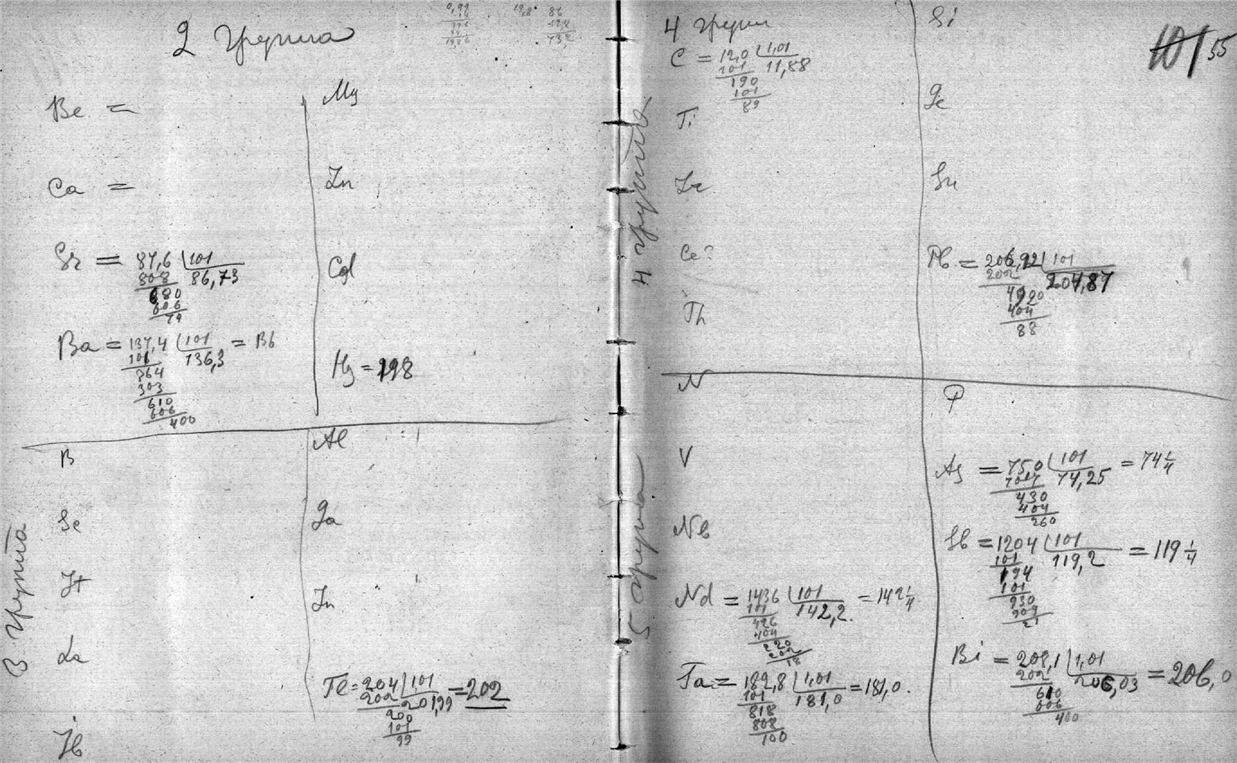 2 группа
Be =
Mg
Ca =
Zn
Sr = 87,6 | 101
808 86,73
680
606
79
Cd
Ba = 137,4 | 101 = B6
101 136,3
364
303
610
606
400
Hg = 198
3 группа
B
Al
Sc
Ga
It
In
La
Tl = 204 | 101 = 202
202 201,99
200
101
99
Yb
101 55
4 группа
4 группа
C = 12,0 | 1,01
101 11,88
190
101
89
Si
Ti
Ge
Zr
Sn
Ce?
Pb = 206,92 | 101
202 204,87
4920
404
88
Th
5 группа
N
P
V
As = 750 | 101 = 74 1/4
707 74,25
430
404
260
Nb
Sb = 1204 | 101 = 119 1/4
101 119,2
194
101
930
909
21
Nd = 1436 | 101 = 142 1/4
101 142,2
426
404
220
202
18
Bi = 208,1 | 1,01 = 206,0
202 206,03
610
606
400
Ta = 182,8 | 1,01 = 181,0.
101 181,0
818
808
100